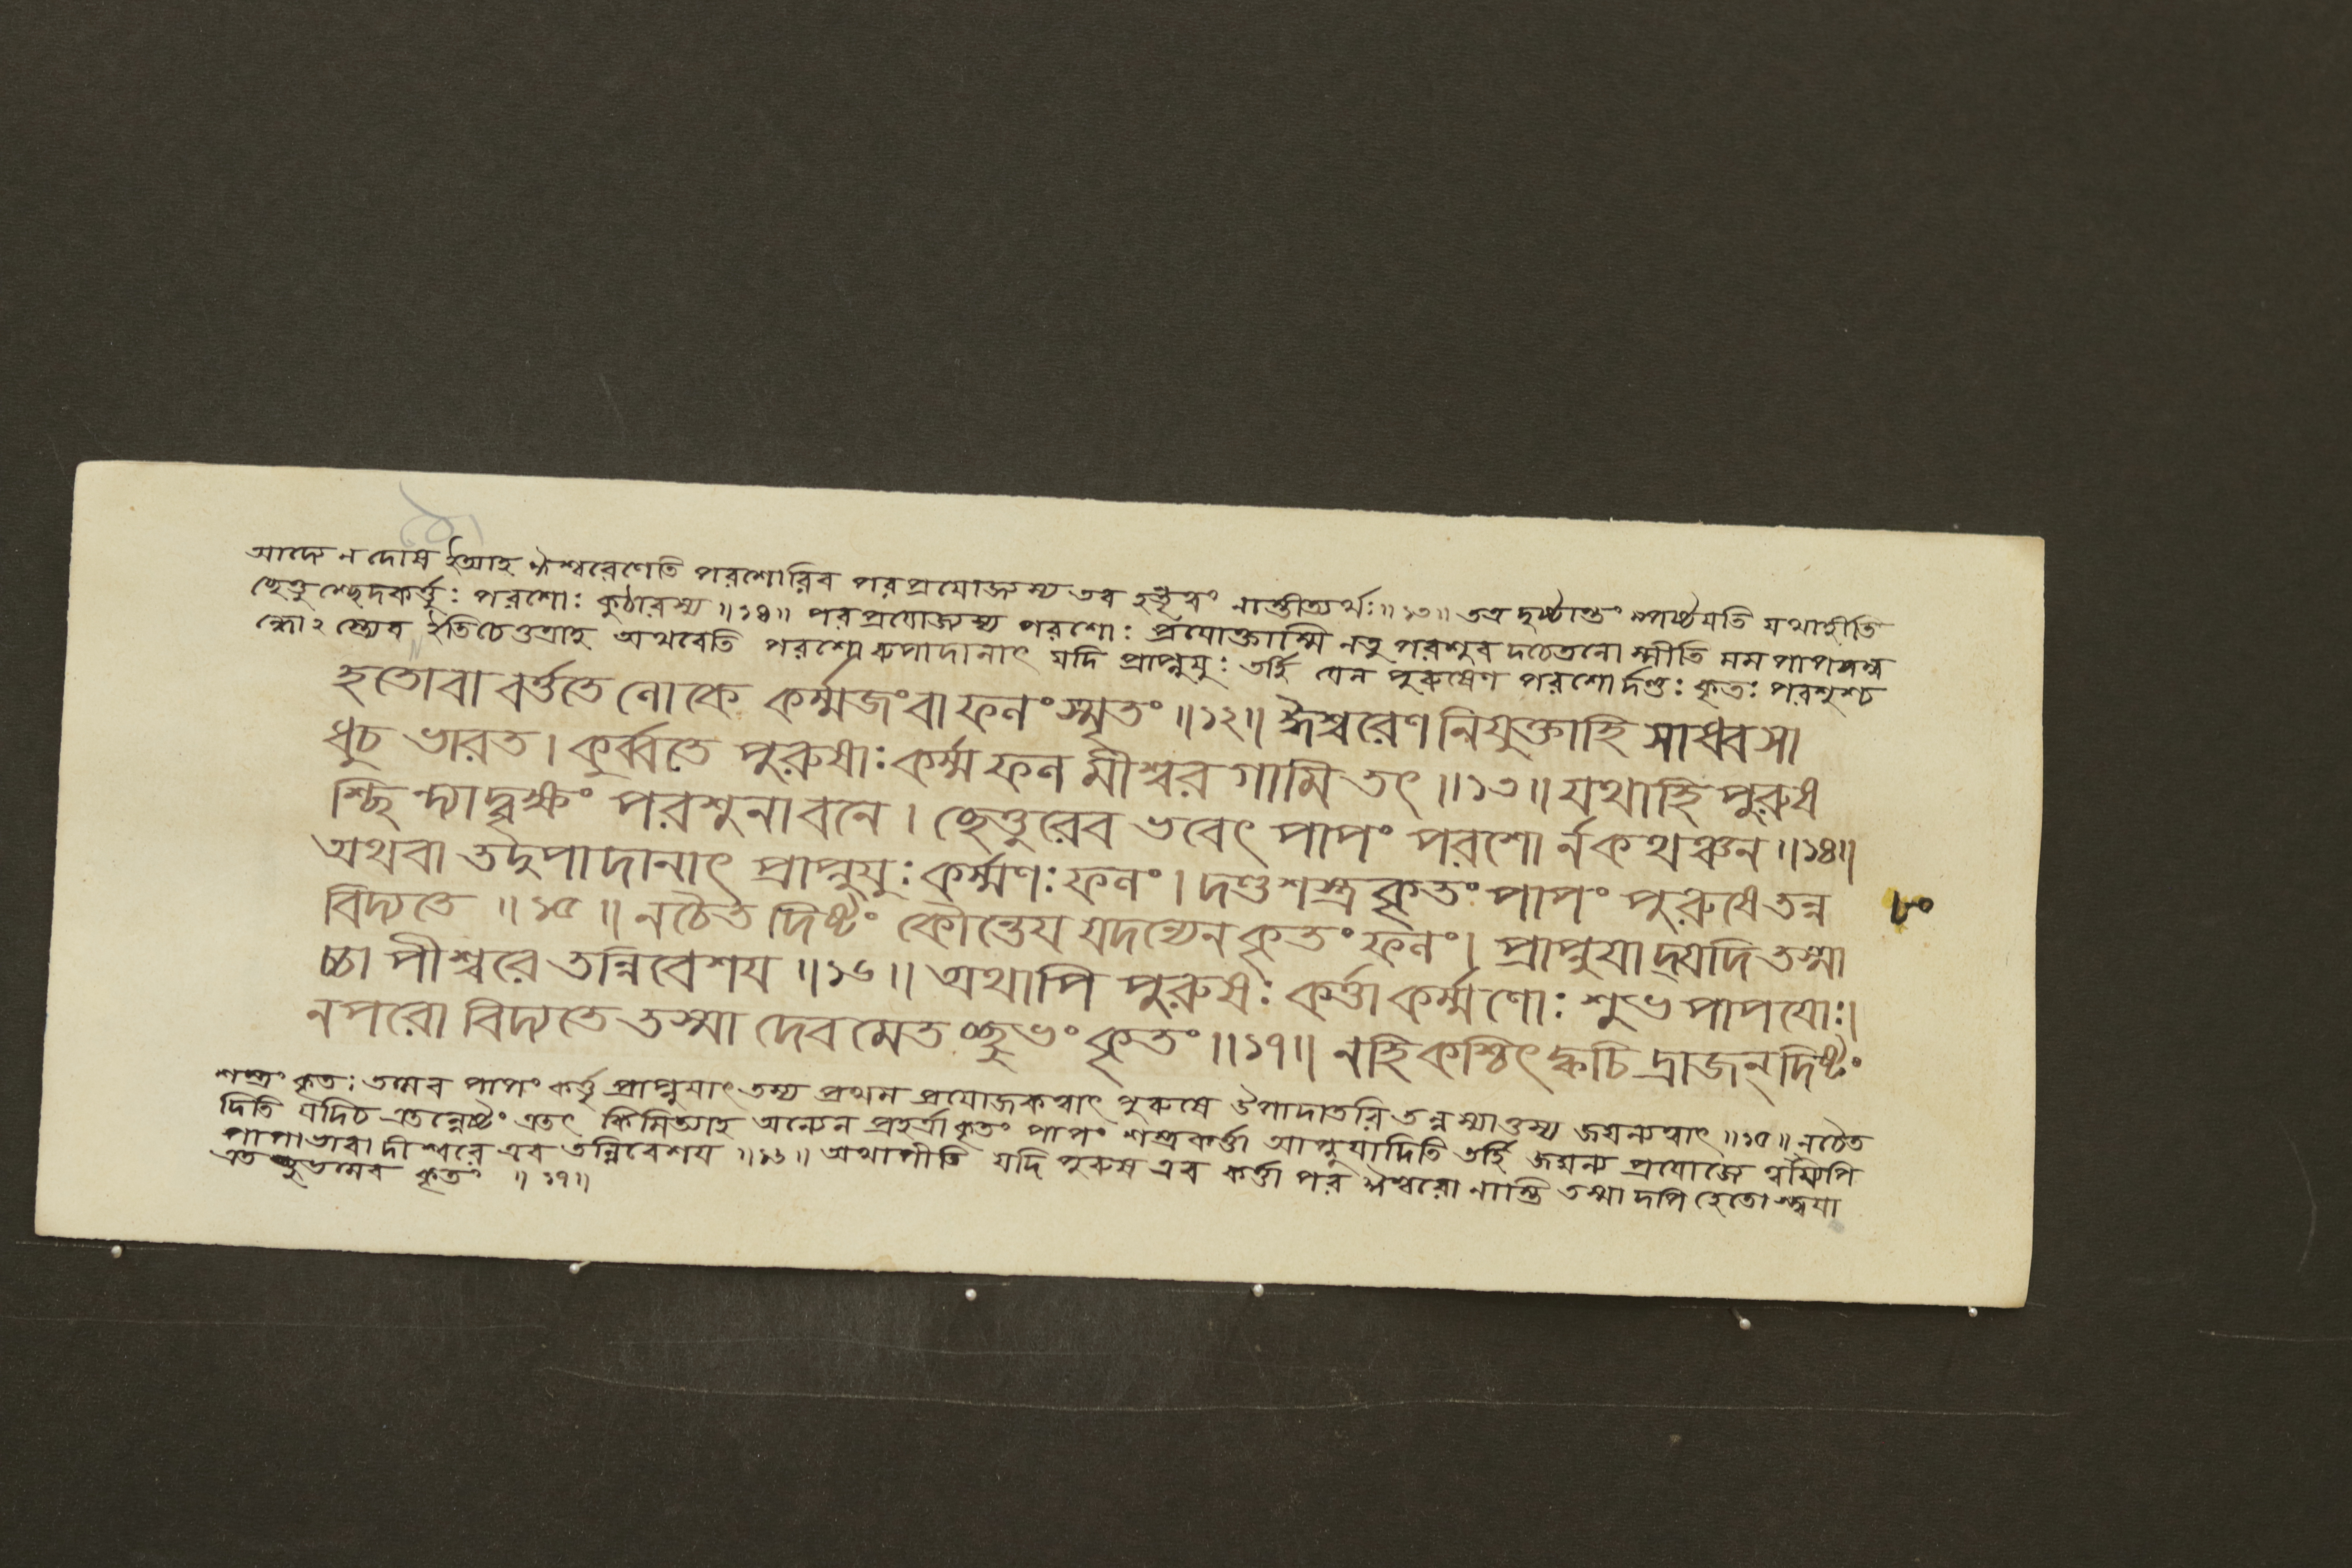 আদ্যে ন দোষ ইত্যাহ ঈশ্বরেণেতি পরশোরিব পরপ্রযোজ্যস্য তব হন্তৃত্বং নাস্তীত্যর্থঃ॥১৩॥ তত্র দৃষ্টান্তং স্পষ্টযতি যথাহীতি
ছেত্তুশ্ছেদকর্ত্তুঃ পরশোঃ কুঠারস্য॥১৪॥ পরপ্রযোজ্যস্য পরশোঃ প্রযোক্তাস্মি নতু পরশুবদচেতনোস্মীতি মম পাপসম্ব
ন্ধোঽস্ত্যেব ইতিচেত্তত্রাহ অথবেতি পরশোরুপাদানাৎ যদি প্রাপ্নুযুঃ তর্হি যেন পুরুষেণ পরশোর্দণ্ডঃ কৃতঃ পরশুশ্চ
হতোবা বর্ত্ততে লোকে কর্ম্মজংবা ফলং স্মৃতং॥১২॥ ঈশ্বরেণ নিযুক্তাহি সাধ্বসা
ধুচ ভারত। কুর্ব্বতে পুরুষাঃ কর্ম্ম ফল মীশ্বর গামি তৎ॥১৩॥ যথাহি পুরুষ
শ্ছিন্দ্যাদ্বৃক্ষং পরশুনা বনে। ছেত্তুরেব ভবেৎ পাপং পরশোর্নকথঞ্চন॥১৪॥
অথবা তদুপাদানাৎ প্রাপ্নুযুঃ কর্ম্মণঃ ফলং। দণ্ডশস্ত্রকৃতং পাপং পুরুষে তন্ন
বিদ্যতে॥১৫॥ নচৈত দিষ্টং কৌন্তেয যদন্যেন কৃতং ফলং। প্রাপ্নুযাদ্যদি তস্মা
চ্চাপীশ্বরে তন্নিবেশয॥১৬॥ অথাপি পুরুষঃ কর্ত্তা কর্ম্মণোঃ শুভ পাপযোঃ।
নপরো বিদ্যতে তস্মা দেব মেতচ্ছুভং কৃতং॥১৭॥ নহি কশ্চিৎ ক্বচি দ্রাজন্ দিষ্টং
৮০
শস্ত্রং কৃতঃ তমেব পাপং কর্ত্তৃ প্রাপ্নুযাৎ তস্য প্রথম প্রযোজকত্বাৎ পুরুষে উপাদাতরি তন্নস্যাত্তস্য জঘন্যত্বাৎ॥১৫॥ নচৈত
দিতি যদিচ এতন্নেষ্টং এতৎ কিমিত্যাহ অন্যেন প্রহর্ত্রাকৃতং পাপং শস্ত্রকর্ত্তা আপ্নুযাদিতি তর্হি জঘন্য প্রযোজ্যে ত্বয্যপি
পাপাভাবাদীশ্বরে এব তন্নিবেশয॥১৬॥ অথাপীতি যদি পুরুষ এব কর্ত্তা পর ঈশ্বরো নাস্তি তস্মাদপি হেতোস্ত্বযা
এতচ্ছুভমেব কৃতং॥১৭॥